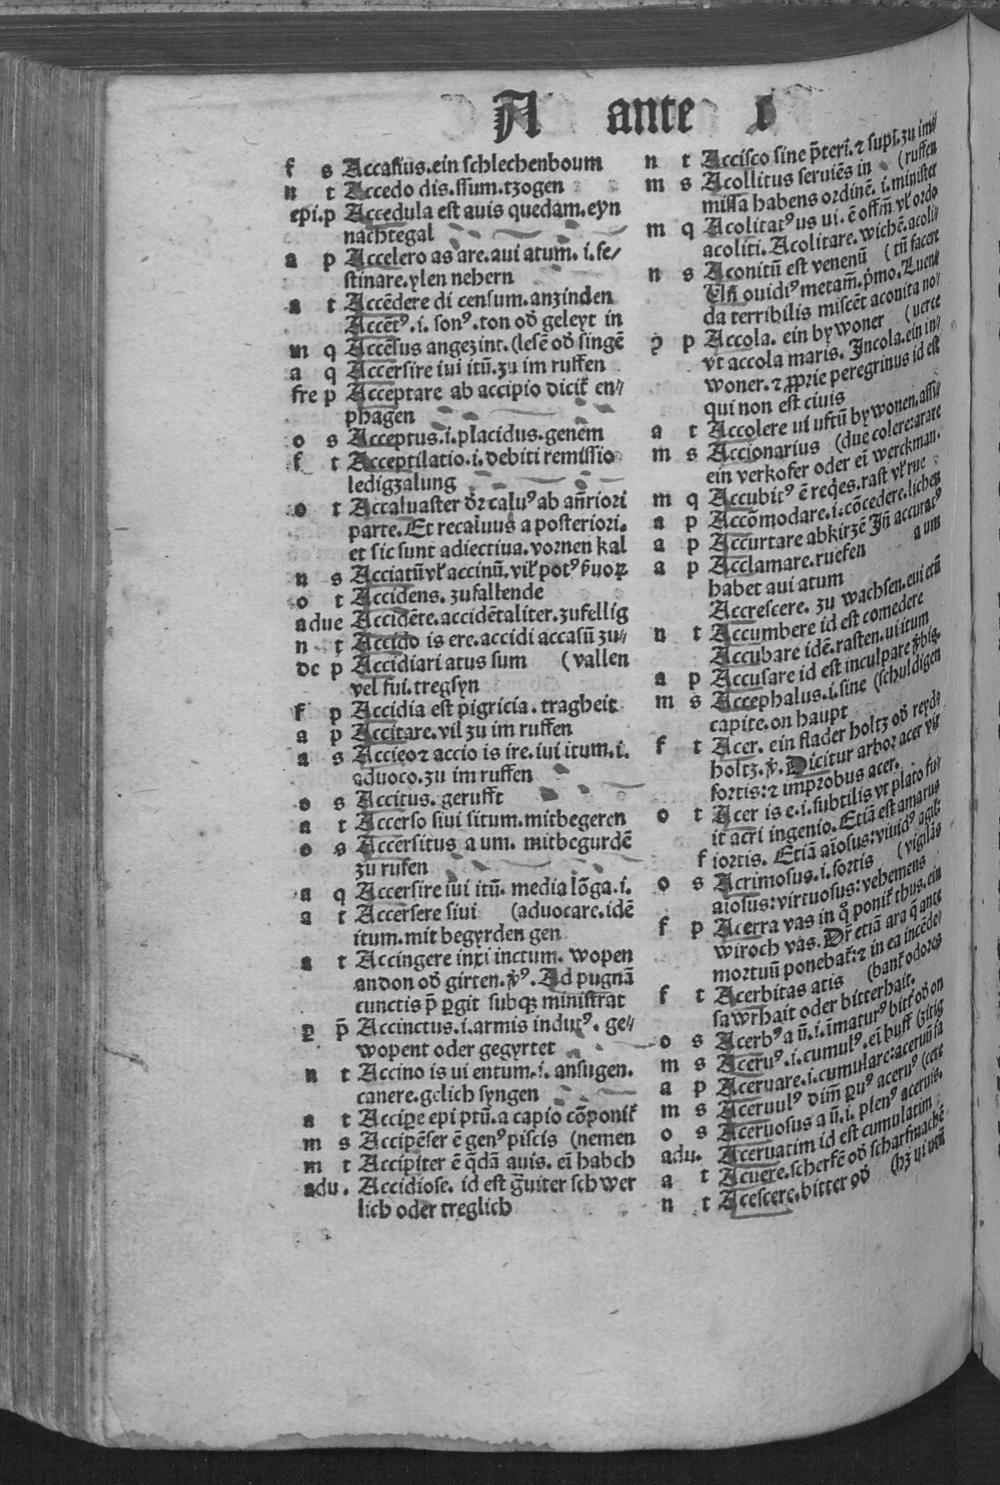 A ante
f s Accasius.ein schlechenboum
n t Accedo dis.ssum.tzogen
epi.p Accedula est auis quedam.eyn
nachtegal
a p Accelero as are.aui atum.i.fe/
stinare.ylen nehern
a t Accēdere di censum.anzinden
Accēt⁹.i.son⁹.ton od̛ geleyt in
m q Accēsus angezint.(lesē od̛ singē
a q Accersire iui itū.zu im ruffen
fre p Acceptare ab accipio dicit̛ en//
phagen
o s Acceptus.i.placidus.genem
f t Acceptilatio.i.debiti remissio
ledigzalung
o t Accaluaster dr̄ calu⁹ ab an̄riori
parte.Et recaluus a posteriori.
et sic sunt adiectiua.vornen kal
n s Acciatū vl̛ accinū.
o t Accidens.zufallende
adue Accidēte.accidētaliter.zufellig
n t Accido is ere.accidi accasū zu//
dc p Accidiari atus sum (vallen
vel fui.tregsyn
f p Accidia est pigricia.tragheit
a p Accitare.vil zu im ruffen
a s Accieo ⁊ accio is ire.iui itum.i.
aduoco.zu im ruffen
o s Accitus.gerufft
a t Accerso siui situm.mitbegeren
o s Accersitus a um.mitbegurdē
zu rufen
a q Accersire iui itū.media lōga.i.
a t Accersere siui (aduocare.idē
itum.mit begyrden gen
a t Accingere inxi inctum.wopen
andon od̛ girten.v̛⁹.Ad pugnā
cunctis p̄ ꝑgit subqꝫ ministrat
ꝑ p̄ Accinctus.i.armis indut⁹.ge//
wopent oder gegyrtet
n t Accino is ui entum.i.ansugen.
canere.gelich syngen
a t Accipe epi ptū.a capio cōponit̛
m s Accipēser ē gen⁹ piscis (nemen
m t Accipiter ē q̄dā auis.eī habch
adu. Accidiose.id est g̈uiter schwer
lich oder treglich
n t Accisco sine p̄teri.⁊ supi.zu im/
m s Acollitus seruiēs in (ruffen
missa habens ordinē.i.minister
m q Acolitat⁹ us ui.ē offm̄ vl̛ ordo
acoliti.Acolitare.wichē.acoli/
n s Aconitū est venenū (tū facere
Un̄ ouidi⁹ metam̄.p̄mo.Luent
da terribilis miscēt aconita no/
p Accola.ein bywoner (uerce
vt accola maris.Incola.ein in/
woner.⁊ ꝓprie peregrinus id est
qui non est ciuis
a t Accolere ui ustū bywonen.assi/
m s Accionarius (due colere:arare
ein verkofer oder eī werckman.
m q Accubit⁹ ē req̇es.rast vl̛ rue
a p Accōmodare.i.cōcedere.lichen
a p Accurtare abkirzē Jn̄ accurat⁹
a p Acclamare.ruefen a um
habet aui atum
Accrescere.zu wachsen.eui etū
n t Accumbere id est comedere
Accubare idē.rasten.ui itum
a p Accusare id est inculpare
m s Accephalus.i.sine (schuldigen
capite.on haupt
f t Acer.ein flader holtz od̛ reyd/
holtz.v̛.Dicitur arbor acer vir
fortis:⁊ improbus acer.
o t Acer is e.i.subtilis vt plato fu/
it acri ingenio.Etiā est amarus
f iortis.Etiā aīosus:viuid⁹ agil:
o s Acrimosus.i.fortis (vigilās
aiosus:virtuosus:vehemens
f p Acerra vas in q̊ ponit̛ thus.ein
wiroch vas.Dr̄ etiā ara q̄ ante
mortuū ponebat̛:⁊ in ea incēde/
f t Acerbitas atis (bant̛ odores
sawrhait oder bitterhait.
o s Acerb⁹ a ū.i.īmatur⁹ bitt̛ od̛ on
m s Aceru⁹.i.cumul⁹.eī huff (zitig
a p Aceruare.i.cumulare:aceruū fa
m s Aceruul⁹ dim̄ ꝑu⁹ aceru⁹ (cere
o s Aceruosus a ū.i.plen⁹ aceruis.
adu. Aceruatim id est cumulatim
a t Acuere.scherfē od̛ scharfmachē
n t Acescere.bitter od̛ (hꝫ ui